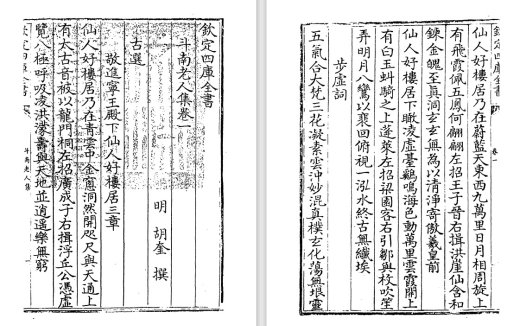 欽定四庫全書
斗南老人集卷一
明 胡奎 撰
古選
敬進寧王殿下仙人好樓居三章
仙人好樓居乃在青雲中金窗洞然開咫尺與天通上
有太古音被以龍門桐左招廣成子右揖浮丘公憑虛
覽八極呼吸凌洪濛壽與天地並逍遥樂無窮
欽定四庫全書
斗南老人集
欽定四庫全書
卷一
仙人好樓居乃在蔚藍天東西九萬里日月相周旋上
有飛霞佩五鳳何翩翩左招王子晉右揖洪崖仙含和
鍊金魄至真洞玄玄無為以清淨寄傲羲皇前
仙人好樓居下瞰凌虛臺鷄鳴海色動萬里雲霞開上
有白玉虯騎之上蓬萊左招梁園客右引鄒與枚吹笙
弄明月八鸞以裴回俯視一泓水終古無纖埃
步虛詞
五氣合大梵三花凝素雲沖妙混真樸玄化蕩無垠靈